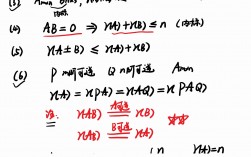 (4) AB=0 ⇒ r(A)+r(B)≤n (内标)
(5) r(A±B) ≤ r(A)+r(B)
(6) P m阶可逆 Q n阶可逆 Amn
r(A)=r(PA)=r(AQ)=r(PAQ)
注: r(AB) A可逆 r(B)
r(AB) B可逆 r(A)
r(A)=n